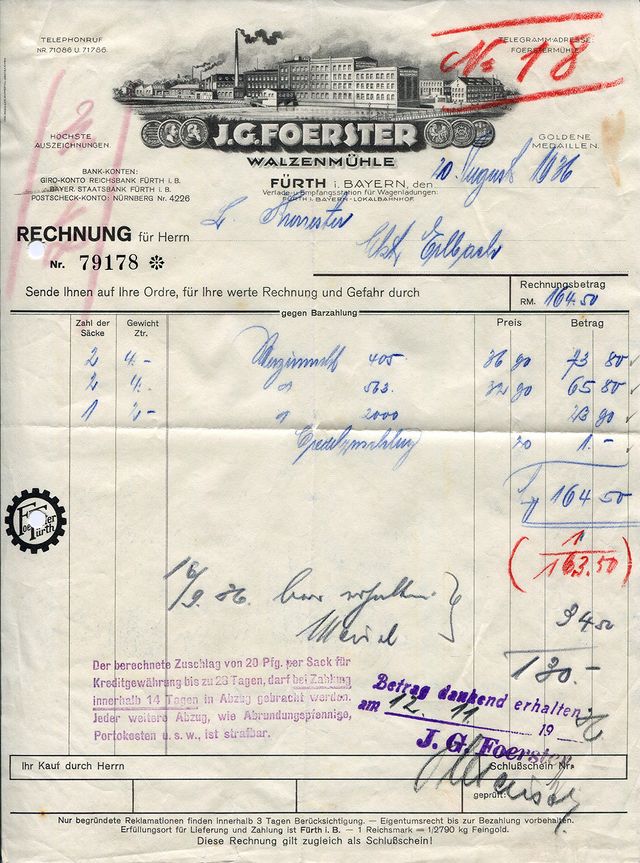 TELEPHONRUF
NR. 71086 U. 71786.
TELEGRAMM-ADRESSE:
FOERSTERMÜHLE
No 18
HÖCHSTE
AUSZEICHNUNGEN.
J.G. FOERSTER
WALZENMÜHLE
GOLDENE
MEDAILLEN.
BANK-KONTEN:
GIRO-KONTO REICHSBANK FÜRTH i. B.
BAYER. STAATSBANK FÜRTH i. B.
POSTSCHECK-KONTO: NÜRNBERG Nr. 4226
FÜRTH i. BAYERN, den 20 August 1936
Verlade- u. Empfangsstation für Wagenladungen:
FÜRTH i. BAYERN - LOKALBAHNHOF.
RECHNUNG für Herrn
Nr. 79178
Sende Ihnen auf Ihre Ordre, für Ihre werte Rechnung und Gefahr durch
Rechnungsbetrag
RM. 164.50
gegen Barzahlung
Zahl der Säcke Gewicht Ztr. Preis Betrag
2 4.- 405 36 90 73 80
2 4. " 563. 32 90 65 80
1 2- " 2000 23 90
20 1.-
164 50
1
(163.50)
16/9. 36. bar erhalten
34 50
130.-
Foerster
Fürth
Der berechnete Zuschlag von 20 Pfg. per Sack für
Kreditgewährung bis zu 28 Tagen, darf bei Zahlung
innerhalb 14 Tagen in Abzug gebracht werden.
Jeder weitere Abzug, wie Abrundungspfennige,
Portokosten u. s. w., ist strafbar.
Betrag dankend erhalten
am 12. 11 19 36
J. G. Foerster
Ihr Kauf durch Herrn
Schlußschein Nr.
geprüft:
Nur begründete Reklamationen finden innerhalb 3 Tagen Berücksichtigung. — Eigentumsrecht bis zur Bezahlung vorbehalten.
Erfüllungsort für Lieferung und Zahlung ist Fürth i. B. — 1 Reichsmark = 1/2790 kg Feingold.
Diese Rechnung gilt zugleich als Schlußschein!